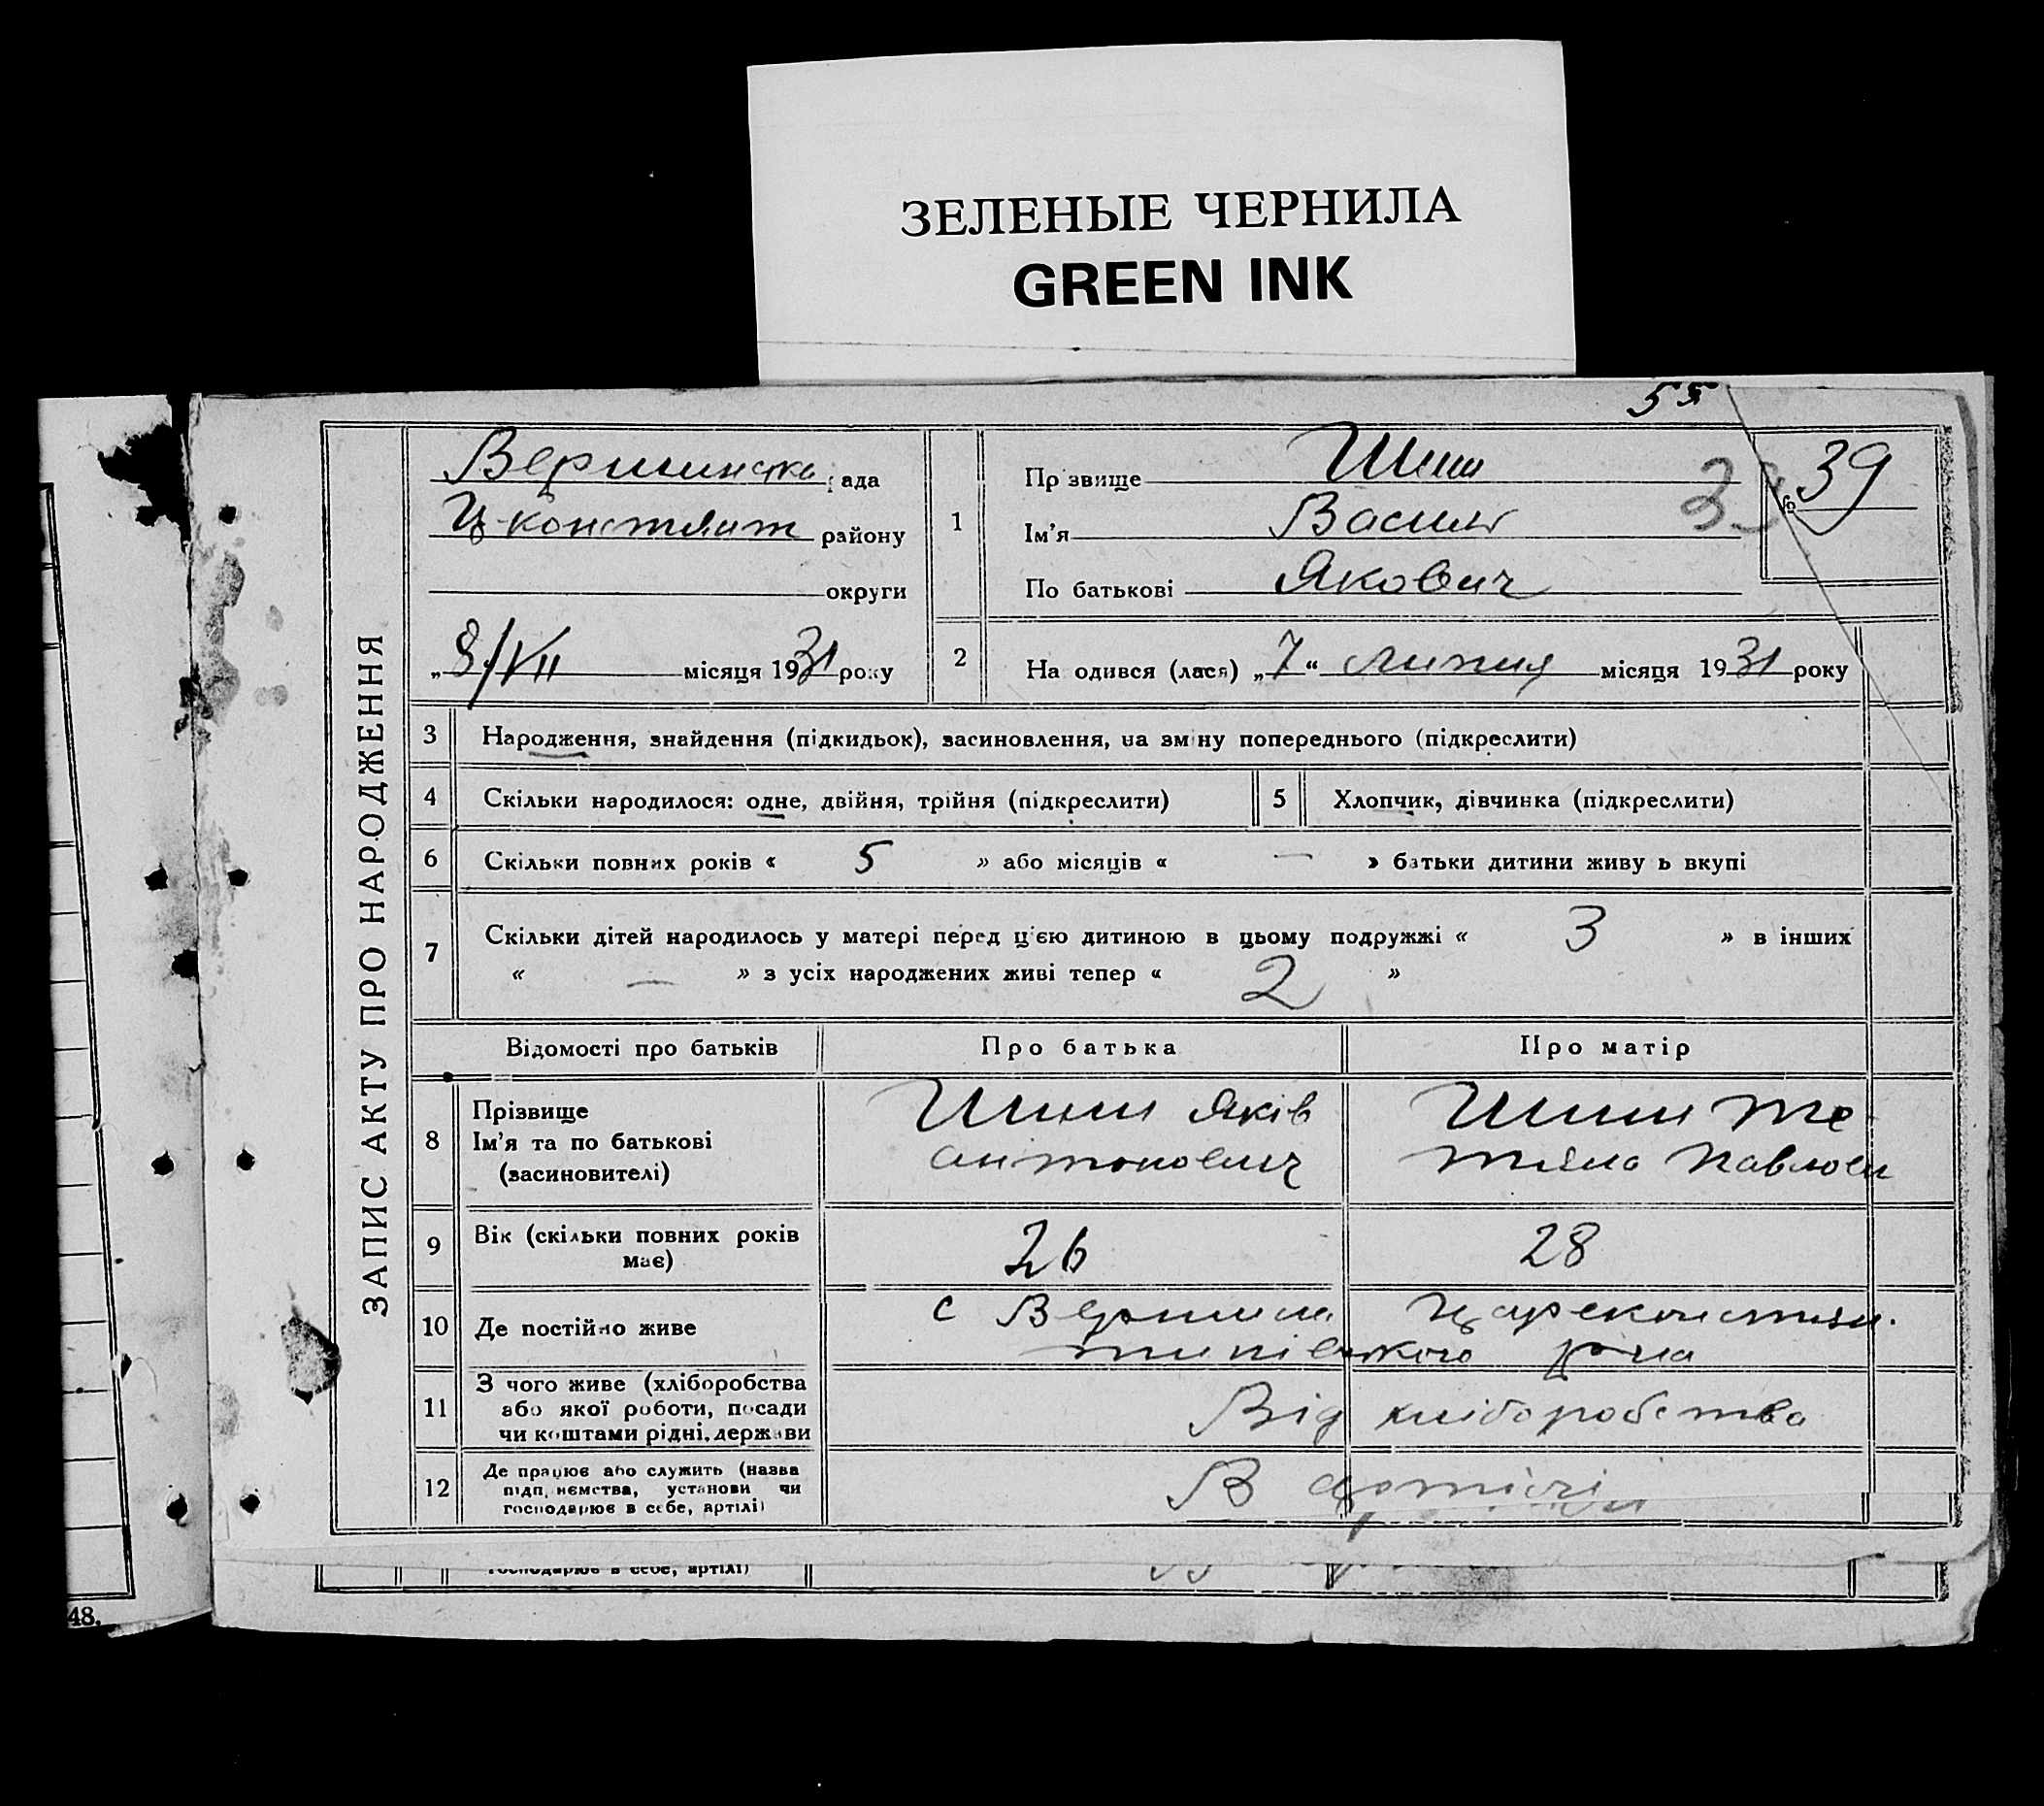 ЗЕЛЕНЫЕ ЧЕРНИЛА
GREEN INK
55
ЗАПИС АКТУ ПРО НАРОДЖЕННЯ
Вершинська рада
Ц-констянт району
округи
„8/VII місяця 1931 року
1
Прізвище Шиш
Ім'я Василь
По батькові Якович
39
2 На одився (лася) „7“ липня місяця 1931 року
3 Народження, знайдення (підкидьок), засиновлення, на зміну попереднього (підкреслити)
4 Скільки народилося: одне, двійня, трійня (підкреслити)
5 Хлопчик, дівчинка (підкреслити)
6 Скільки повних років « 5 » або місяців « — » батьки дитини живу ь вкупі
7 Скільки дітей народилось у матері перед цією дитиною в цьому подружжі « 3 » в інших
« — » з усіх народжених живі тепер « 2 »
Відомості про батьків Про батька Про матір
8 Прізвище
Ім'я та по батькові
(засиновителі)
Шиш Яків
Антонович
Шиш Те
тяна Павлови
9 Вік (скільки повних років
має)
26 28
10 Де постійно живе
с Вершина Царекостян.
тинівського р-на
11 З чого живе (хліборобства
або якої роботи, посади
чи коштами рідні, держави
Від хліборобства
12 Де працює або служить (назва
підп, немства, установи чи
господарює в себе, артілі)
В артілі
господарює в себе, артілі)
48.